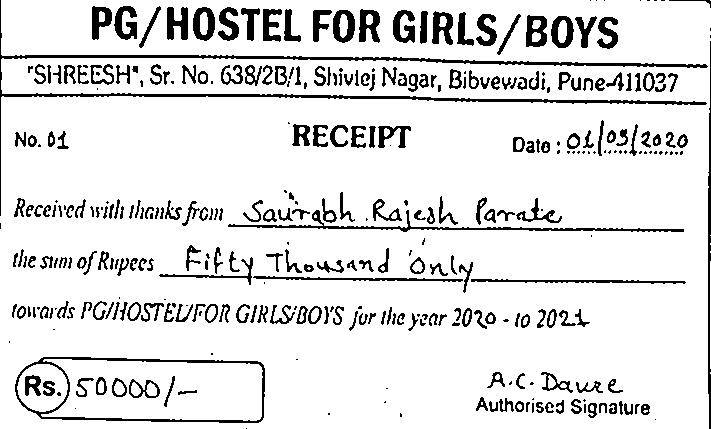 PG/HOSTEL FOR GIRLS/BOYS
"SHREESH", Sr. No. 638/2B/1, Shivtej Nagar, Bibvewadi, Pune-411037
No. 01 RECEIPT Date : 01/03/2020
Received with thanks from Saurabh Rajesh Parate
the sum of Rupees Fifty Thousand Only
towards PG/HOSTEL/FOR GIRLS/BOYS for the year 2020 - to 2021
Rs. 50000/- A.C. Daure
Authorised Signature